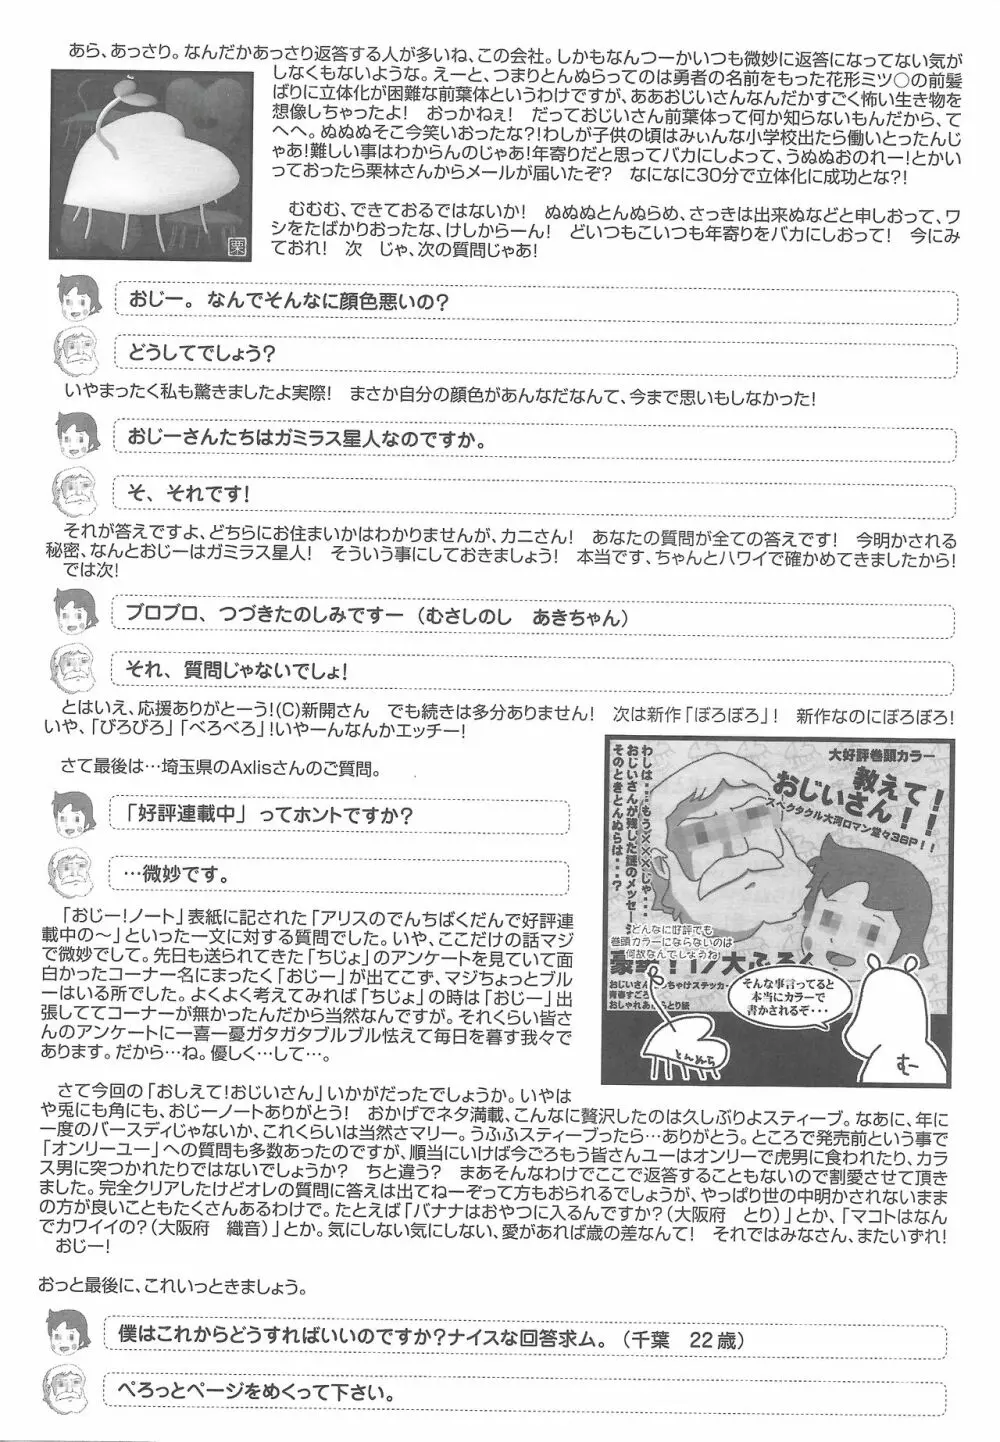 あら、あっさり。なんだかあっさり返答する人が多いね、この会社。しかもなんつーかいつも微妙に返答になってない気が
しなくもないような。えーと、つまりとんぬらってのは勇者の名前をもった花形ミツ○の前髪
ばりに立体化が困難な前葉体というわけですが、ああおじいさんなんだかすごく怖い生き物を
想像しちゃったよ!　おっかねぇ!　だっておじいさん前葉体って何か知らないもんだから、て
へへ。ぬぬぬそこ今笑いおったな?!わしが子供の頃はみぃんな小学校出たら働いとったんじ
ゃあ!難しい事はわからんのじゃあ!年寄りだと思ってバカにしよって、うぬぬおのれー!とかい
っておったら栗林さんからメールが届いたぞ?　なになに30分で立体化に成功とな?!
栗
むむむ、できておるではないか!　ぬぬぬとんぬらめ、さっきは出来ぬなどと申しおって、ワ
シをたばかりおったな、けしからーん!　どいつもこいつも年寄りをバカにしおって!　今にみ
ておれ!　次　じゃ、次の質問じゃあ!
おじー。なんでそんなに顔色悪いの?
どうしてでしょう?
いやまったく私も驚きましたよ実際!　まさか自分の顔色があんなだなんて、今まで思いもしなかった!
おじーさんたちはガミラス星人なのですか。
そ、それです!
それが答えですよ、どちらにお住まいかはわかりませんが、カニさん!　あなたの質問が全ての答えです!　今明かされる
秘密、なんとおじーはガミラス星人!　そういう事にしておきましょう!　本当です、ちゃんとハワイで確かめてきましたから!
では次!
ブロブロ、つづきたのしみですー（むさしのし　あきちゃん）
それ、質問じゃないでしょ!
とはいえ、応援ありがとーう!(C)新開さん　でも続きは多分ありません!　次は新作「ぼろぼろ」!　新作なのにぼろぼろ!
いや、「びろびろ」「べろべろ」!いやーんなんかエッチー!
さて最後は…埼玉県のAxlisさんのご質問。
「好評連載中」ってホントですか?
…微妙です。
「おじー!ノート」表紙に記された「アリスのでんちばくだんで好評連
載中の～」といった一文に対する質問でした。いや、ここだけの話マジ
で微妙でして。先日も送られてきた「ちじょ」のアンケートを見ていて面
白かったコーナー名にまったく「おじー」が出てこず、マジちょっとブル
ーはいる所でした。よくよく考えてみれば「ちじょ」の時は「おじー」出
張しててコーナーが無かったんだから当然なんですが。それくらい皆さ
んのアンケートに一喜一憂ガタガタブルブル怯えて毎日を暮す我々で
あります。だから…ね。優しく…して…。
大好評巻頭カラー
教えて!
おじいさん!!
スペクタクル大河ロマン堂々38P!!
わしは……もう×××じゃ……
おじいさんが残した謎のメッセージ
そのときとんぬらは……?
どんなに好評でも
巻頭カラーにならないのは
何故なんでしょうね
そんな事言ってると
本当にカラーで
書かされるぞ・・・
とんぬら
むー
さて今回の「おしえて!おじいさん」いかがだったでしょうか。いやは
や兎にも角にも、おじーノートありがとう!　おかげでネタ満載、こんなに贅沢したのは久しぶりよスティーブ。なあに、年に
一度のバースディじゃないか、これくらいは当然さマリー。うふふスティーブったら…ありがとう。ところで発売前という事で
「オンリーユー」への質問も多数あったのですが、順当にいけば今ごろもう皆さんユーはオンリーで虎男に食われたり、カラ
ス男に突つかれたりではないでしょうか?　ちと違う?　まあそんなわけでここで返答することもないので割愛させて頂き
ました。完全クリアしたけどオレの質問に答えは出てねーぞって方もおられるでしょうが、やっぱり世の中明かされないまま
の方が良いこともたくさんあるわけで。たとえば「バナナはおやつに入るんですか?（大阪府　とり）」とか、「マコトはなん
でカワイイの?（大阪府　織音）」とか。気にしない気にしない、愛があれば歳の差なんて!　それではみなさん、またいずれ!
おじー!
おっと最後に、これいっときましょう。
僕はこれからどうすればいいのですか?ナイスな回答求ム。（千葉　22歳）
ぺろっとページをめくって下さい。